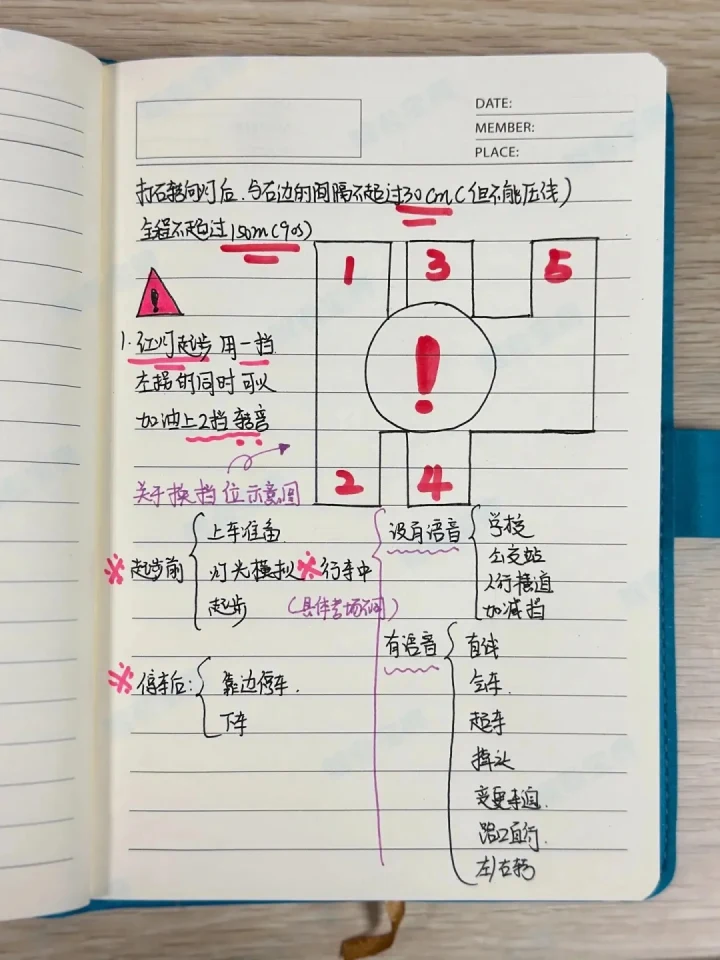 DATE:
MEMBER:
PLACE:
打右转向灯后,与右边的间隔不超过30cm(但不能压线)
全程不超过150m(90s)
1 3 5
!
!
1.红灯起步用一挡
左拐的同时可以
加油上2挡转弯
2 4
关于换挡位示意图
※起步前
上车准备
灯光模拟
起步
※行车中
(具体考场不同)
没有语音
学校
公交站
人行横道
加减挡
有语音
直线
会车.
超车
掉头
变更车道.
路口直行.
左/右转
※停车后:
靠边停车.
下车